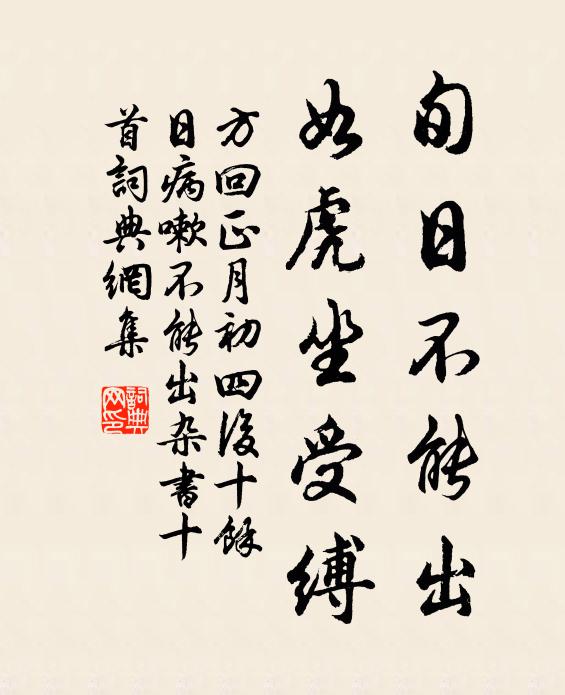 旬日不能出
如虎坐受缚
方回正月初四後十餘
日病嗽不能出杂書十
首詞典網集
詞典网印